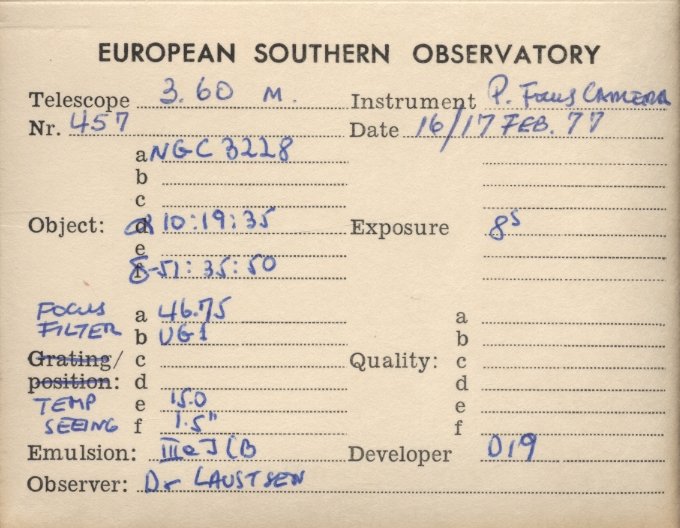 EUROPEAN SOUTHERN OBSERVATORY
Telescope 3.60 M. Instrument P. Focus CAMERA
Nr. 457 Date 16/17 FEB. 77
a NGC 3228
b
c
Object: α d 10:19:35 Exposure 8s
e
δ f -51:35:50
FOCUS a 46.75 a
FILTER b UG1 b
Grating/ c Quality: c
position: d d
TEMP e 15.0 e
SEEING f 1.5" f
Emulsion: IIIaJ Developer D19
Observer: Dr LAUSTSEN